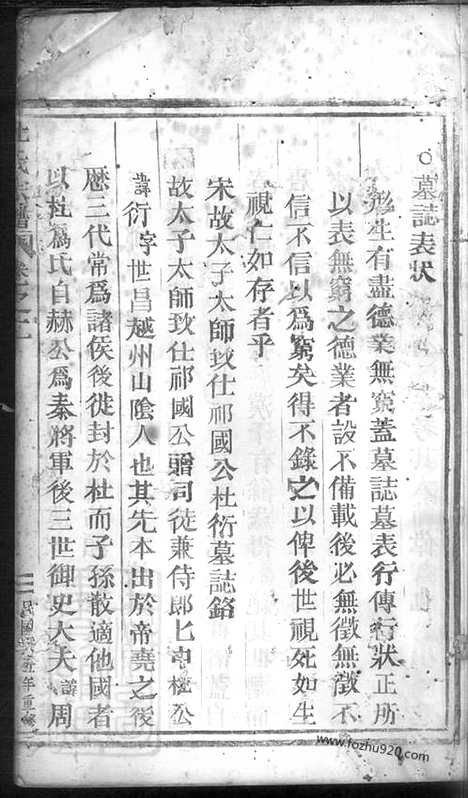 ○墓誌表狀
形生有盡德業無窮蓋墓誌墓表行傳行狀正所
以表無窮之德業者設不備載後必無徵無徵不
信不信以爲窮矣得不錄之以俾後世視死如生
視仁如存者乎
宋故太子太師致仕祁國公杜衍墓誌銘
故太子太師致仕祁國公贈司徒兼侍郎杜公
諱衍字世昌越州山陰人也其先本出於帝堯之後
歷三代常爲諸侯後徙封於杜而子孫散適他國者
以杜爲氏自赫公爲秦將軍後三世御史大夫諱周
民國 年重修
www.fozhu920.com